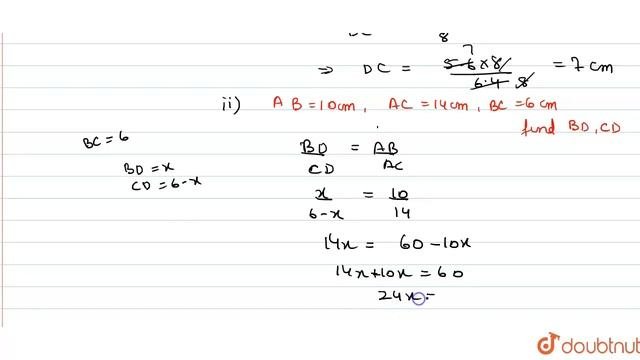 8
7
⇒ DC = 5.6×8/6.4.8 = 7 cm
ii) AB = 10cm, AC = 14cm, BC = 6cm
find BD, CD
BC = 6
BD = x
CD = 6-x
BD/CD = AB/AC
x/6-x = 10/14
14x = 60-10x
14x+10x = 60
24x =
doubtnut